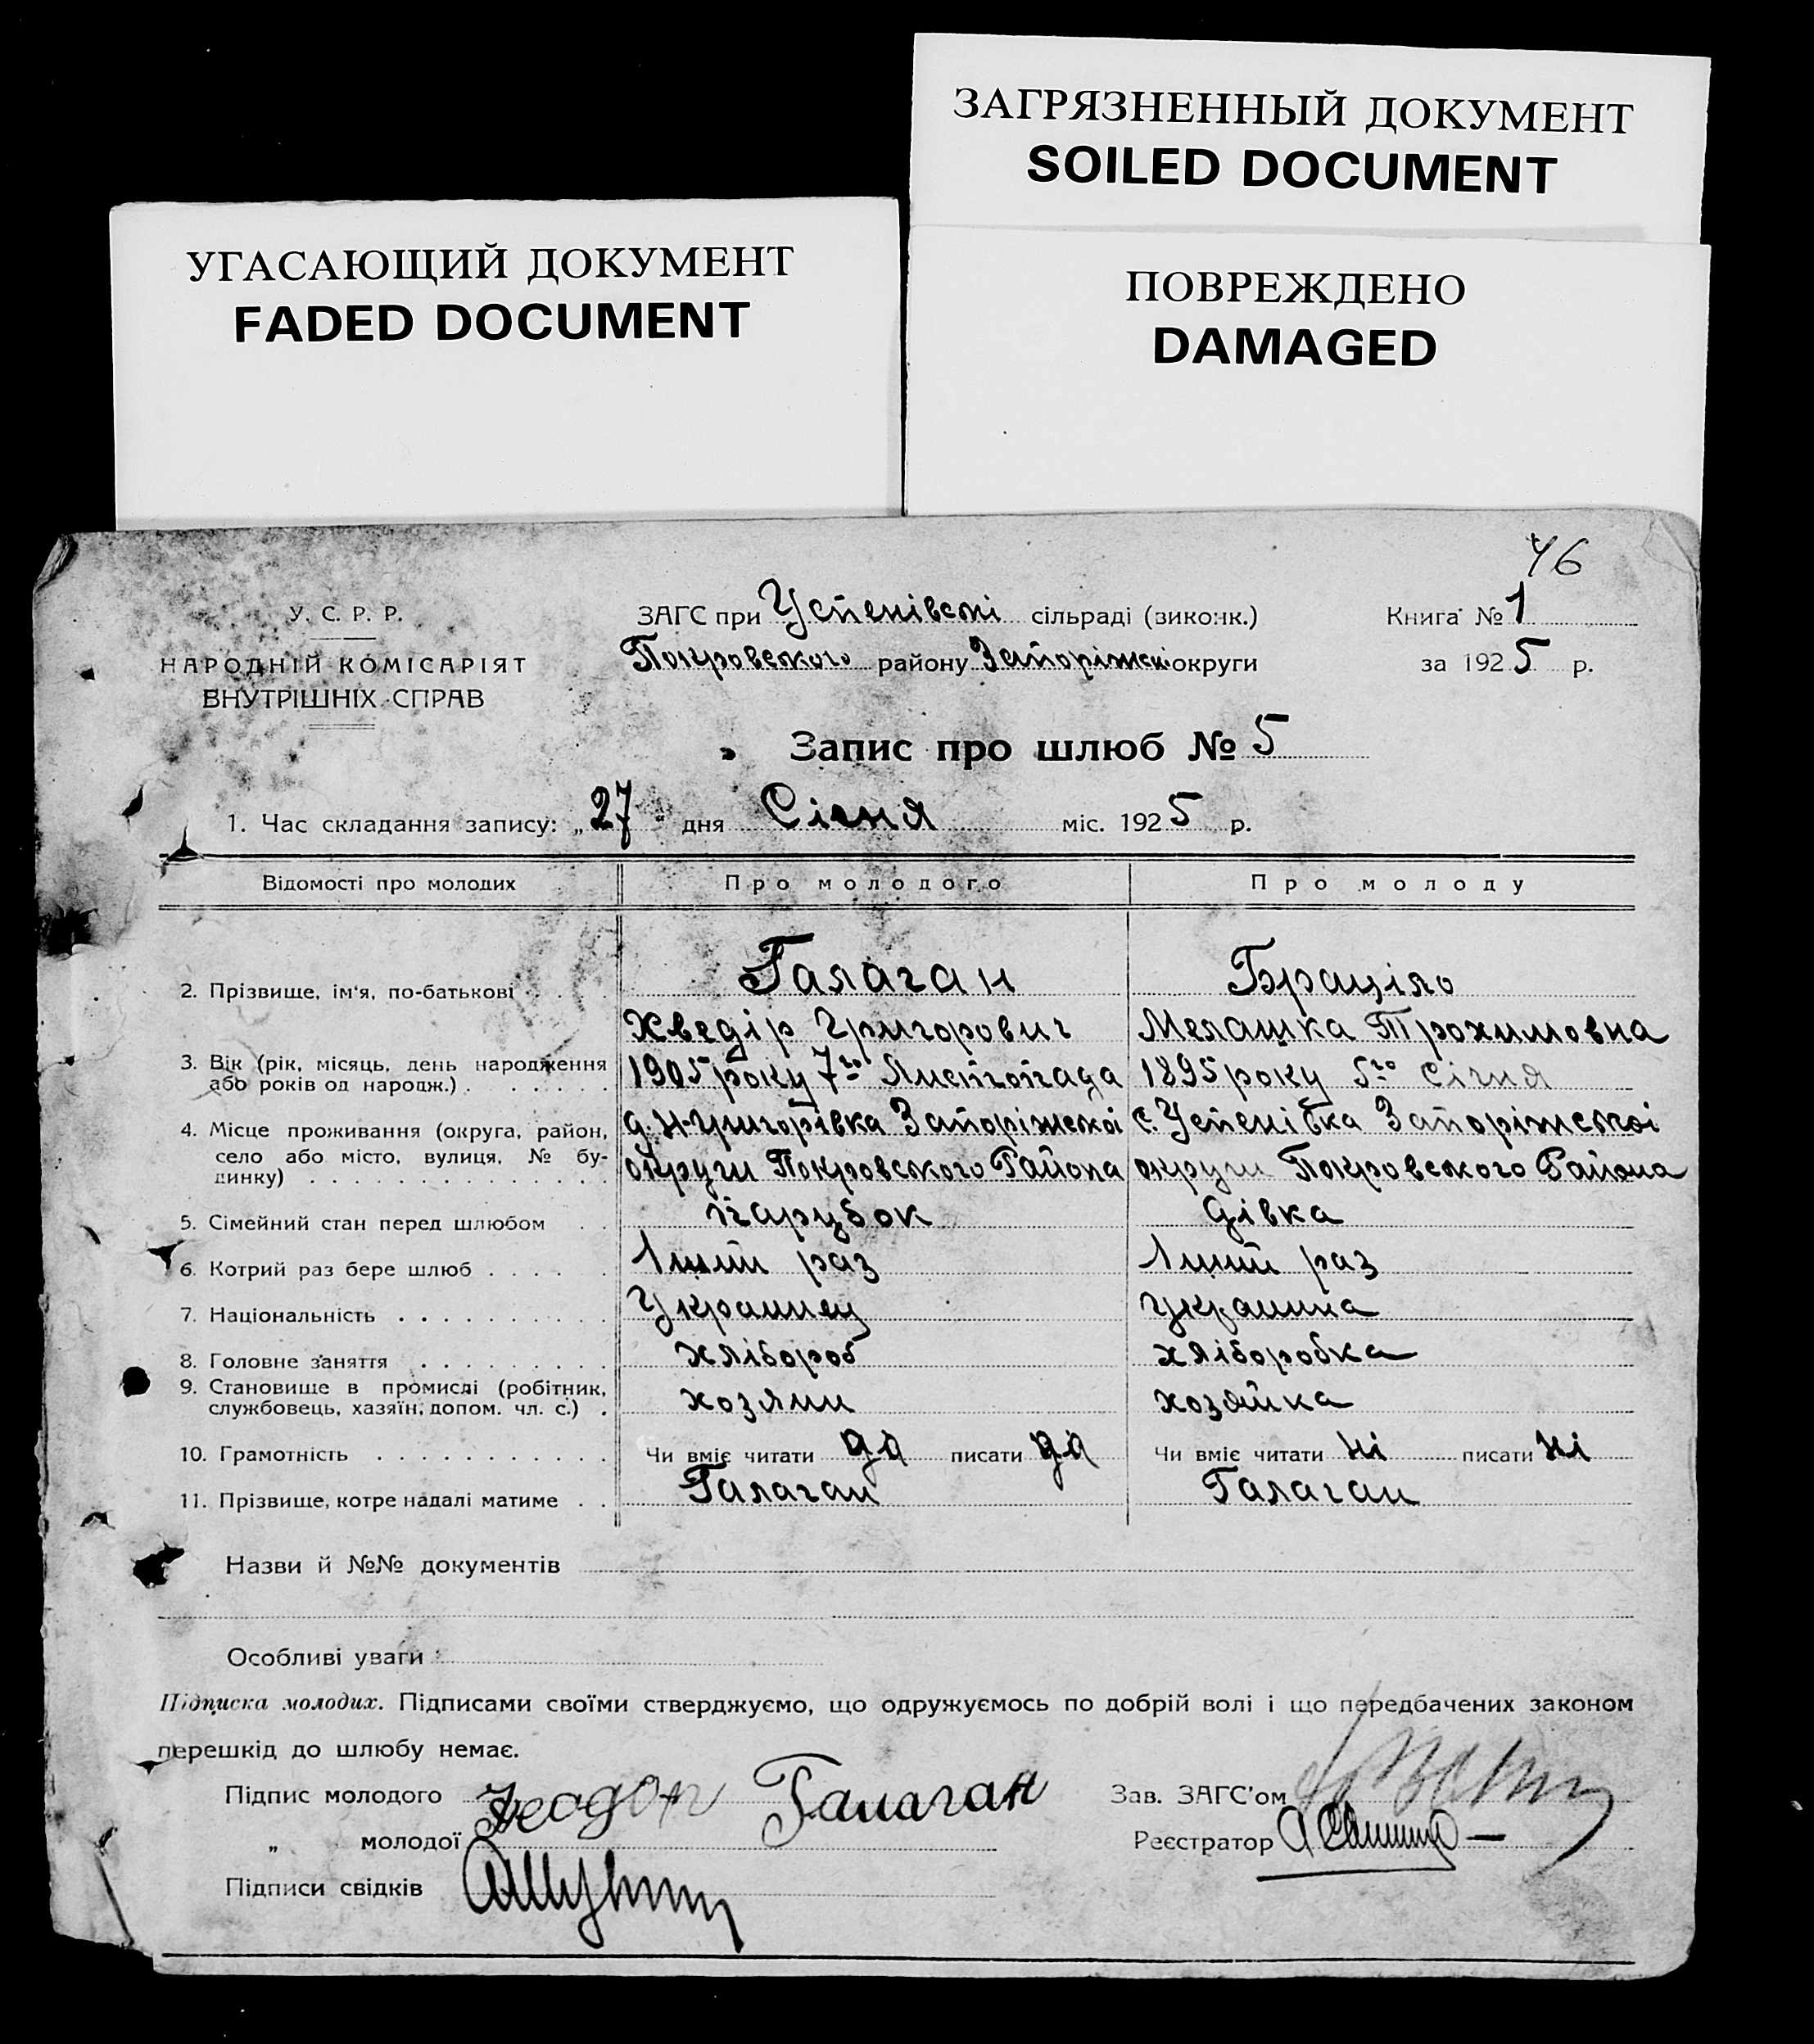 ЗАГРЯЗНЕННЫЙ ДОКУМЕНТ
SOILED DOCUMENT
УГАСАЮЩИЙ ДОКУМЕНТ
FADED DOCUMENT
ПОВРЕЖДЕНО
DAMAGED
46
У. С. Р. Р.
НАРОДНІЙ КОМІСАРІЯТ
ВНУТРІШНІХ СПРАВ
ЗАГС при Успенівскі сільраді (виконк.)
Покровського району Запоріжськ округи
Книга № 1
за 1925 р.
Запис про шлюб № 5
1. Час складання запису: „27“ дня Січня міс. 1925 р.
Відомості про молодих Про молодого Про молоду
2. Прізвище, ім'я, по-батькові Галаган Браціло
Хведір Григорович Мелашка Трохимовна
3. Вік (рік, місяць, день народження або років од народж.) 1905 року 7го Листопада 1895 року 5го Січня
4. Місце проживання (округа, район, село або місто, вулиця, № будинку) д. Н-Григорівка Запоріжскої с. Успенівка Запоріжської
округи Покровського Района округи Покровського Района
5. Сімейний стан перед шлюбом парубок дівка
6. Котрий раз бере шлюб 1ший раз 1ший раз
7. Національність Украинец Украинка
8. Головне заняття хлібороб хліборобка
9. Становище в промислі (робітник, службовець, хазяїн, допом. чл. с.) хозяин хозяйка
10. Грамотність Чи вміє читати да писати да Чи вміє читати ні писати ні
11. Прізвище, котре надалі матиме Галаган Галаган
Назви й №№ документів
Особливі уваги
Підписка молодих. Підписами своїми стверджуємо, що одружуємось по добрій волі і що передбачених законом
перешкід до шлюбу немає.
Підпис молодого Галаган Зав. ЗАГС'ом
„ молодої Реєстратор
Підписи свідків